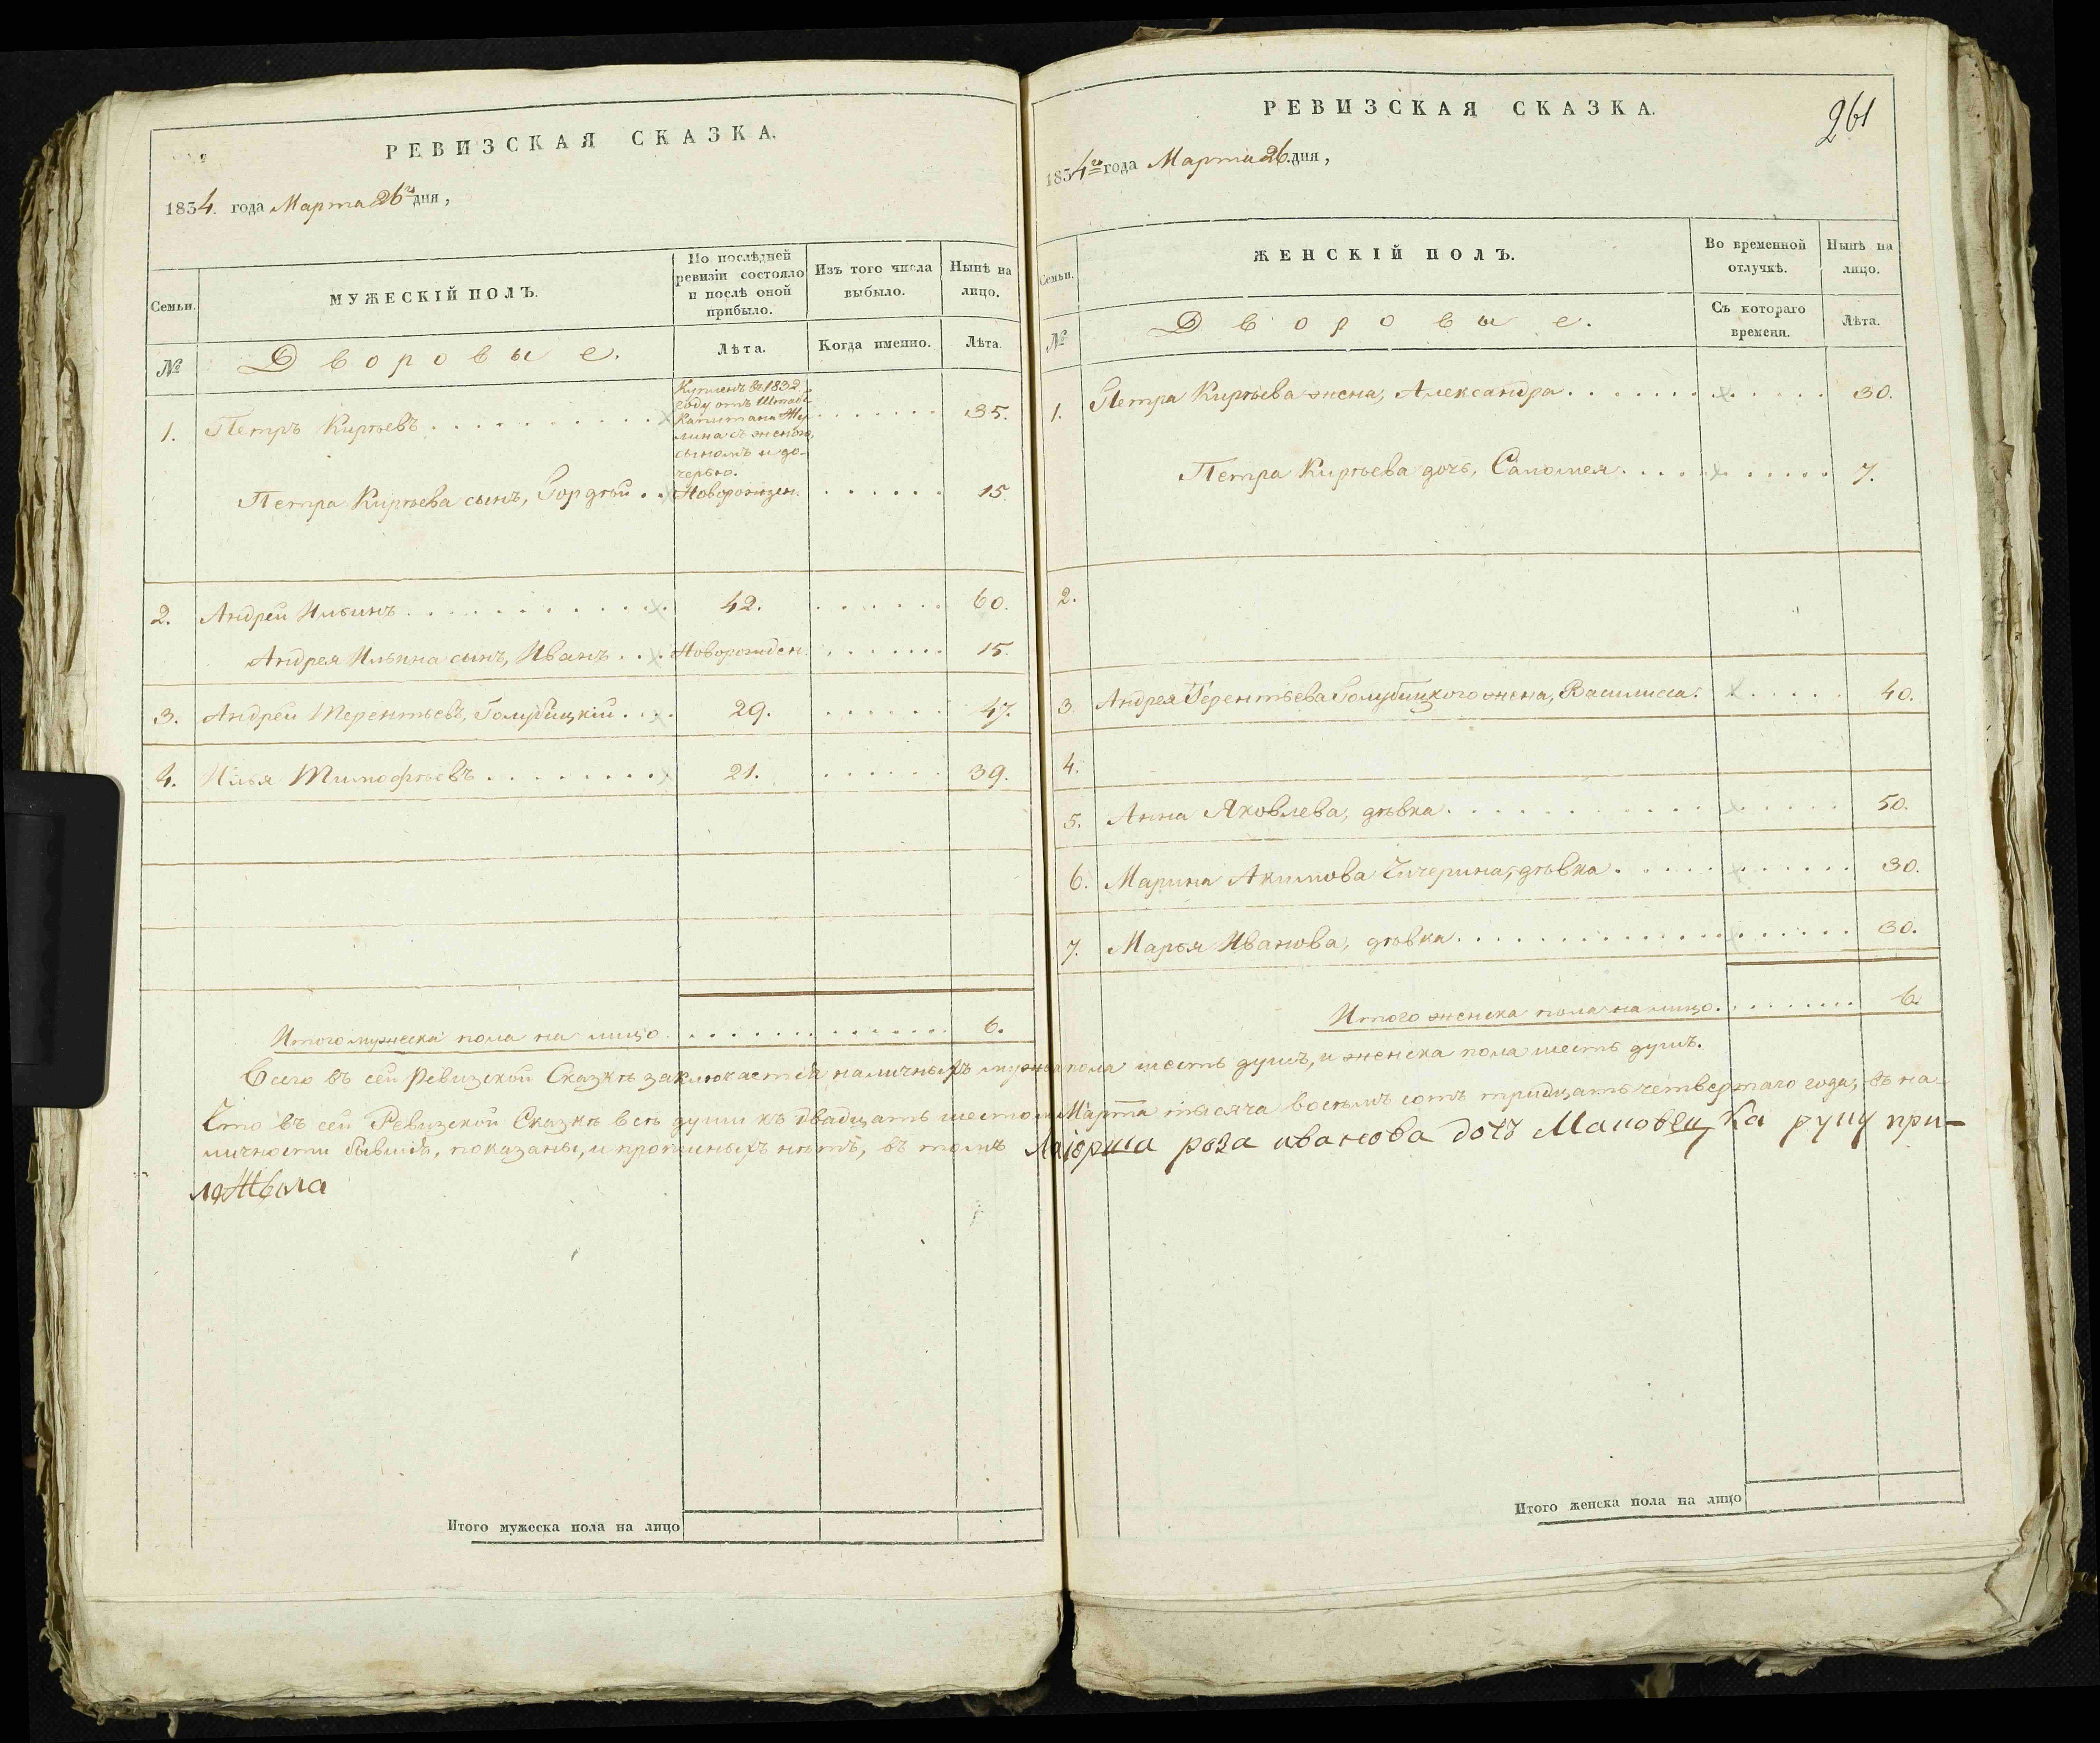 РЕВИЗСКАЯ СКАЗКА.
1834. года Марта 26го дня,
Семьи.
МУЖЕСКІЙ ПОЛЪ.
По послѣдней ревизіи состояло и послѣ оной прибыло.
Изъ того числа выбыло.
Нынѣ на лицо.
№
Дворовые.
Лѣта.
Когда именно.
Лѣта.
Купленъ въ 1832
году отъ Штабсъ
Капитана
съ женою,
сыномъ и до-
черью.
1. Петръ Кирѣевъ 35.
Петра Кирѣева сынъ, Гордѣй Новорожден. 15.
2. Андрей Ильинъ 42. 60.
Андрея Ильина сынъ, Иванъ Новорожден. 15.
3. Андрей Терентьевъ, Голубицкій 29. 47.
4. Илья Тимофѣевъ 21. 39.
Итого мужеска пола на лицо 6.
Итого мужеска пола на лицо
РЕВИЗСКАЯ СКАЗКА.
261
1834го года Марта 26. дня,
Семьи.
ЖЕНСКІЙ ПОЛЪ.
Во временной отлучкѣ.
Нынѣ на лицо.
№
Дворовые.
Съ котораго времени.
Лѣта.
1. Петра Кирѣева жена, Александра 30.
Петра Кирѣева дочь, Саломея 7.
2.
3. Андрея Терентьева Голубицкого жена, Василиса. 40.
4.
5. Анна Яковлева, дѣвка 50.
6. Марина Акимова Чичерина, дѣвка 30.
7. Марья Иванова, дѣвка 30.
Итого женска пола на лицо. 6.
Всего въ сей Ревизской Сказкѣ заключается наличныхъ мужеска пола шесть душъ, и женска пола шесть душъ.
Что въ сей Ревизской Сказкѣ всѣ души къ двадцать шестому Марта тысяча восемь сотъ тридцать четвертаго года, въ на-
личности бывшія, показаны, и прописныхъ нѣтъ, въ томъ Маіорша роза иванова дочъ руку при-
ложыла
Итого женска пола на лицо